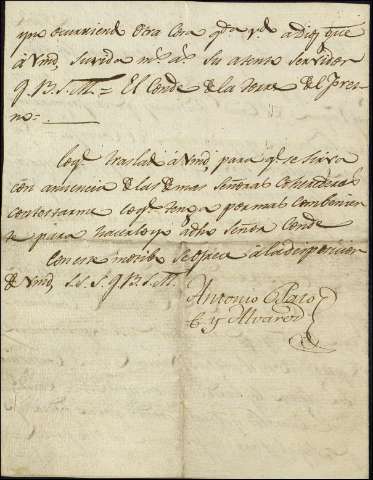 y no ocurriendo otra cosa pido a Dios que
a Vmd, su vida m.s a.s su atento servidor
q. B. S. M. = El Conde de la Torre del Fres-
no =
Loq.e traslado á Vmd, para q.e se sirva
con anuencia de las demas Señoras
contestarme loq.e tenga por mas convenien
te para hacerlo yo a dho Señor Conde
Con este motibo se ofrece á la disposicion
de Vmd, S. S. S. q. B. S. M.
Antonio
y Alvarez